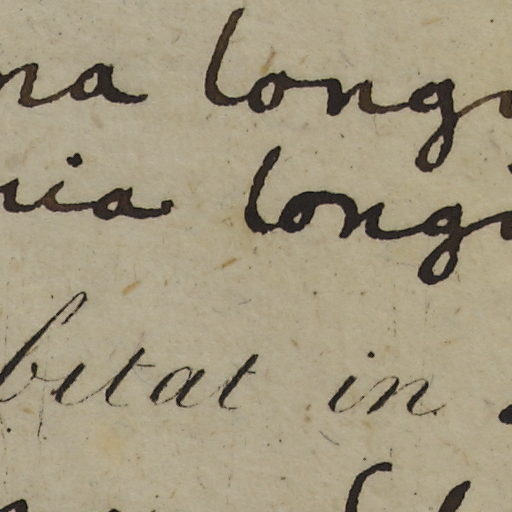 na longi
nia longi
bitat in